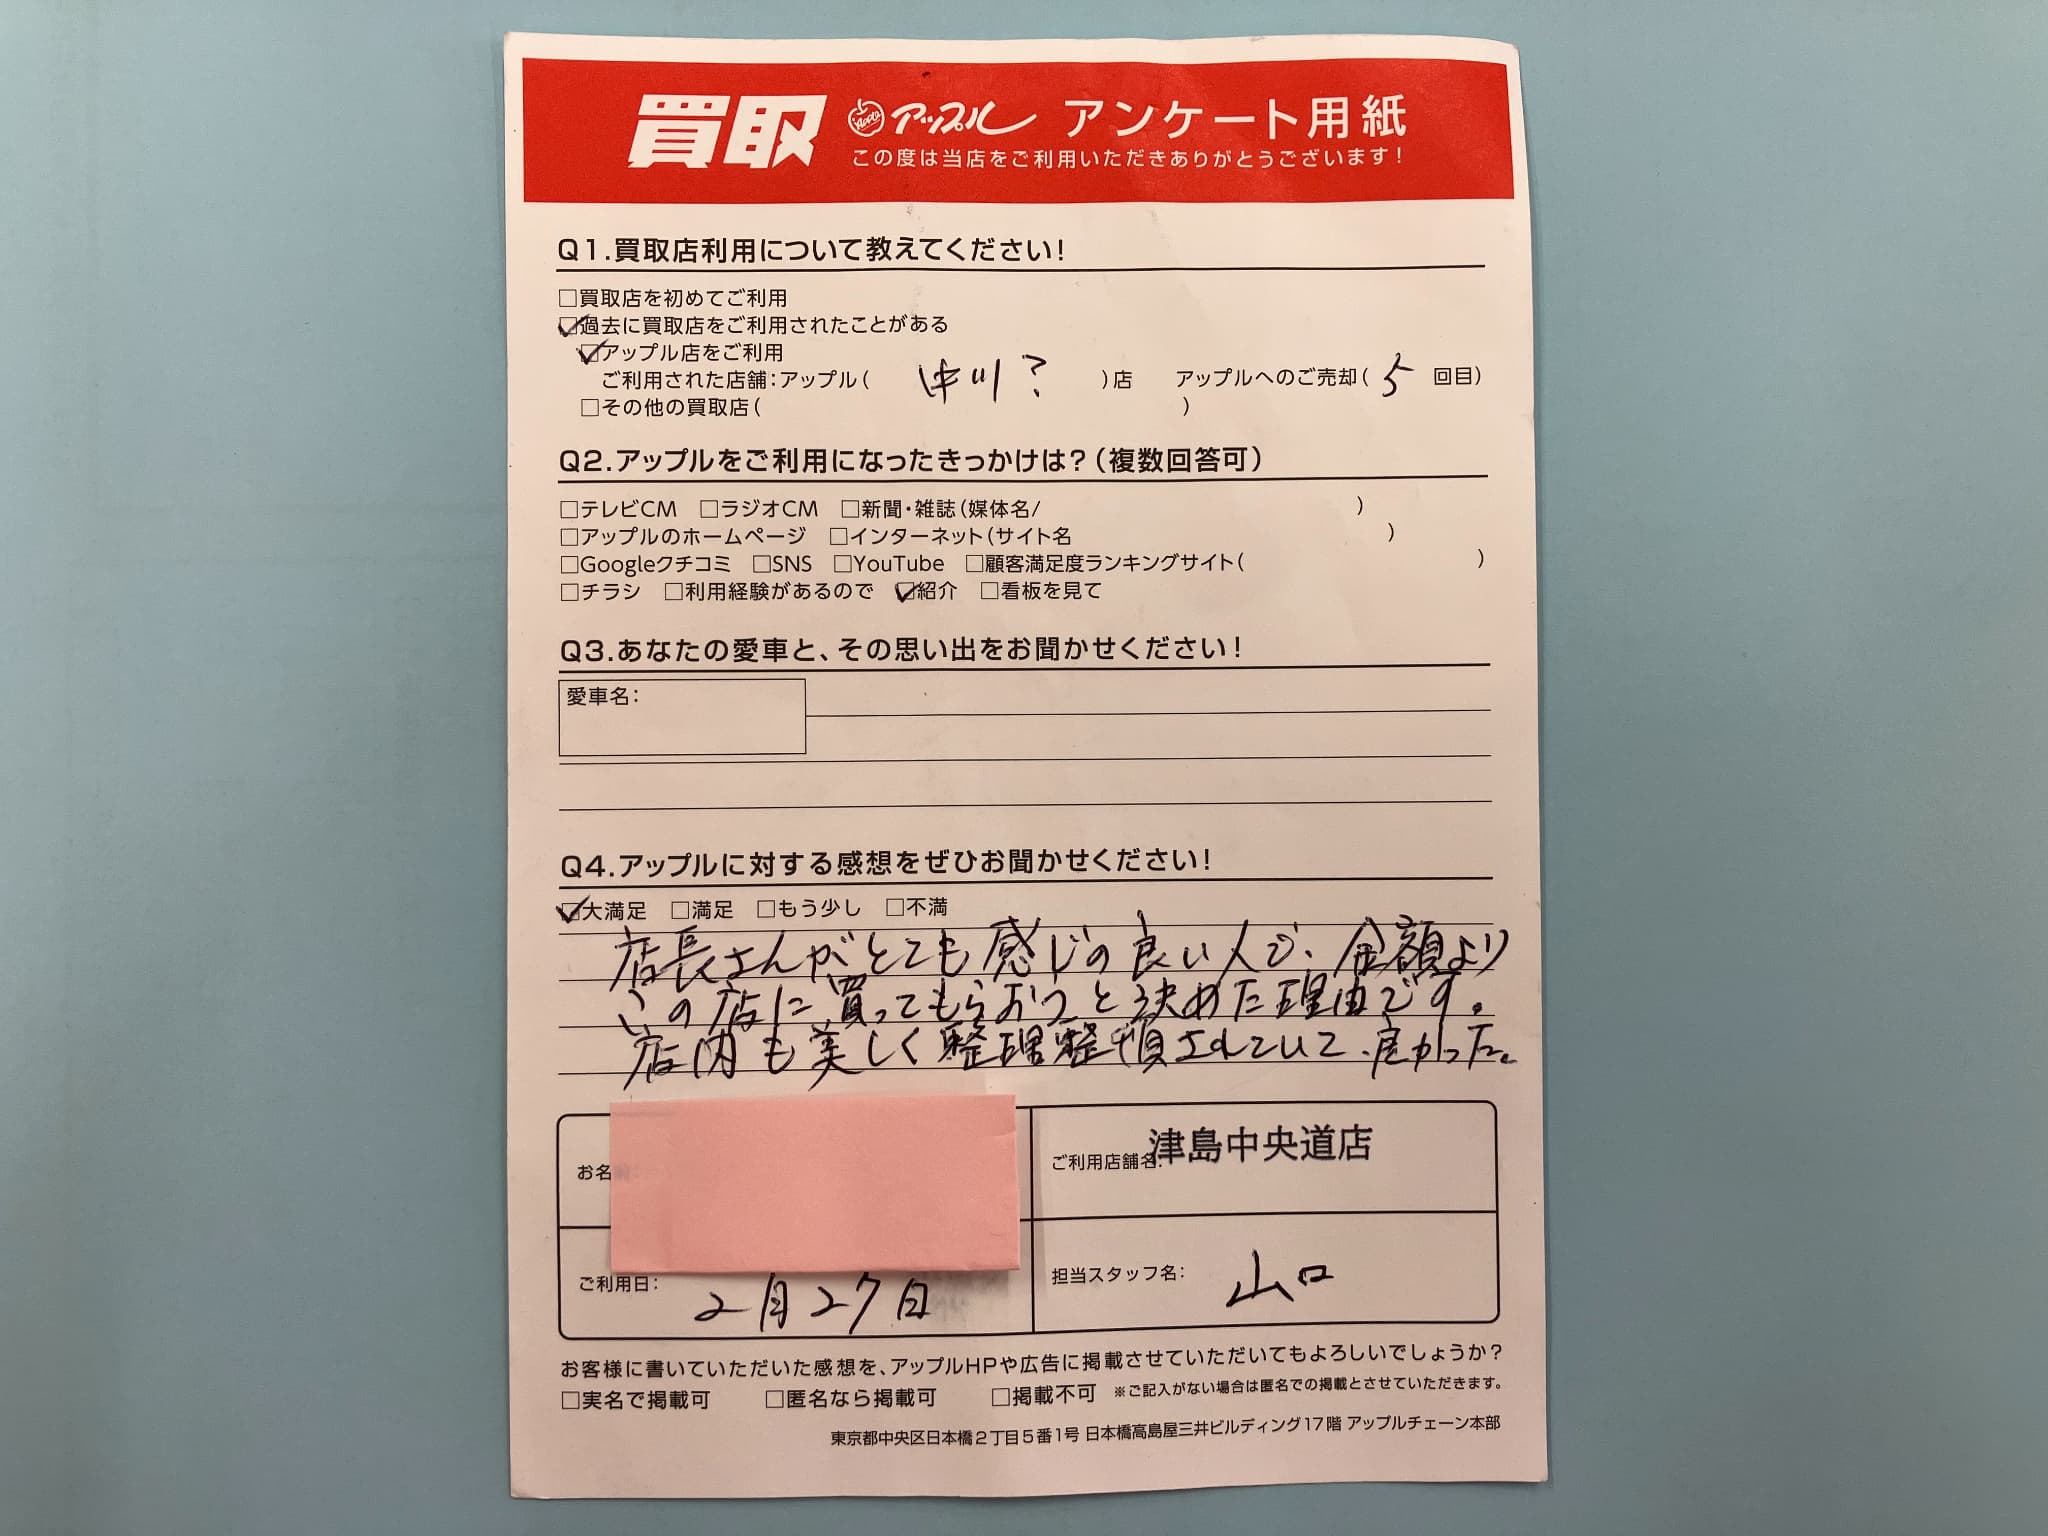 買取 Apple アップル アンケート用紙
この度は当店をご利用いただきありがとうございます!
Q1.買取店利用について教えてください!
□買取店を初めてご利用
☑過去に買取店をご利用されたことがある
☑アップル店をご利用
ご利用された店舗:アップル( 中川? )店 アップルへのご売却( 5 回目)
□その他の買取店( )
Q2.アップルをご利用になったきっかけは?(複数回答可)
□テレビCM □ラジオCM □新聞・雑誌(媒体名/ )
□アップルのホームページ □インターネット(サイト名 )
□Googleクチコミ □SNS □YouTube □顧客満足度ランキングサイト( )
□チラシ □利用経験があるので ☑紹介 □看板を見て
Q3.あなたの愛車と、その思い出をお聞かせください!
愛車名:
Q4.アップルに対する感想をぜひお聞かせください!
☑大満足 □満足 □もう少し □不満
店長さんがとても感じの良い人で、金額より
この店に買ってもらおうと決めた理由です。
店内も美しく整理整頓されていて、良かった。
お名
ご利用店舗名: 津島中央道店
ご利用日: 2月27日
担当スタッフ名: 山口
お客様に書いていただいた感想を、アップルHPや広告に掲載させていただいてもよろしいでしょうか?
□実名で掲載可 □匿名なら掲載可 □掲載不可 ※ご記入がない場合は匿名での掲載とさせていただきます。
東京都中央区日本橋2丁目5番1号 日本橋高島屋三井ビルディング17階 アップルチェーン本部